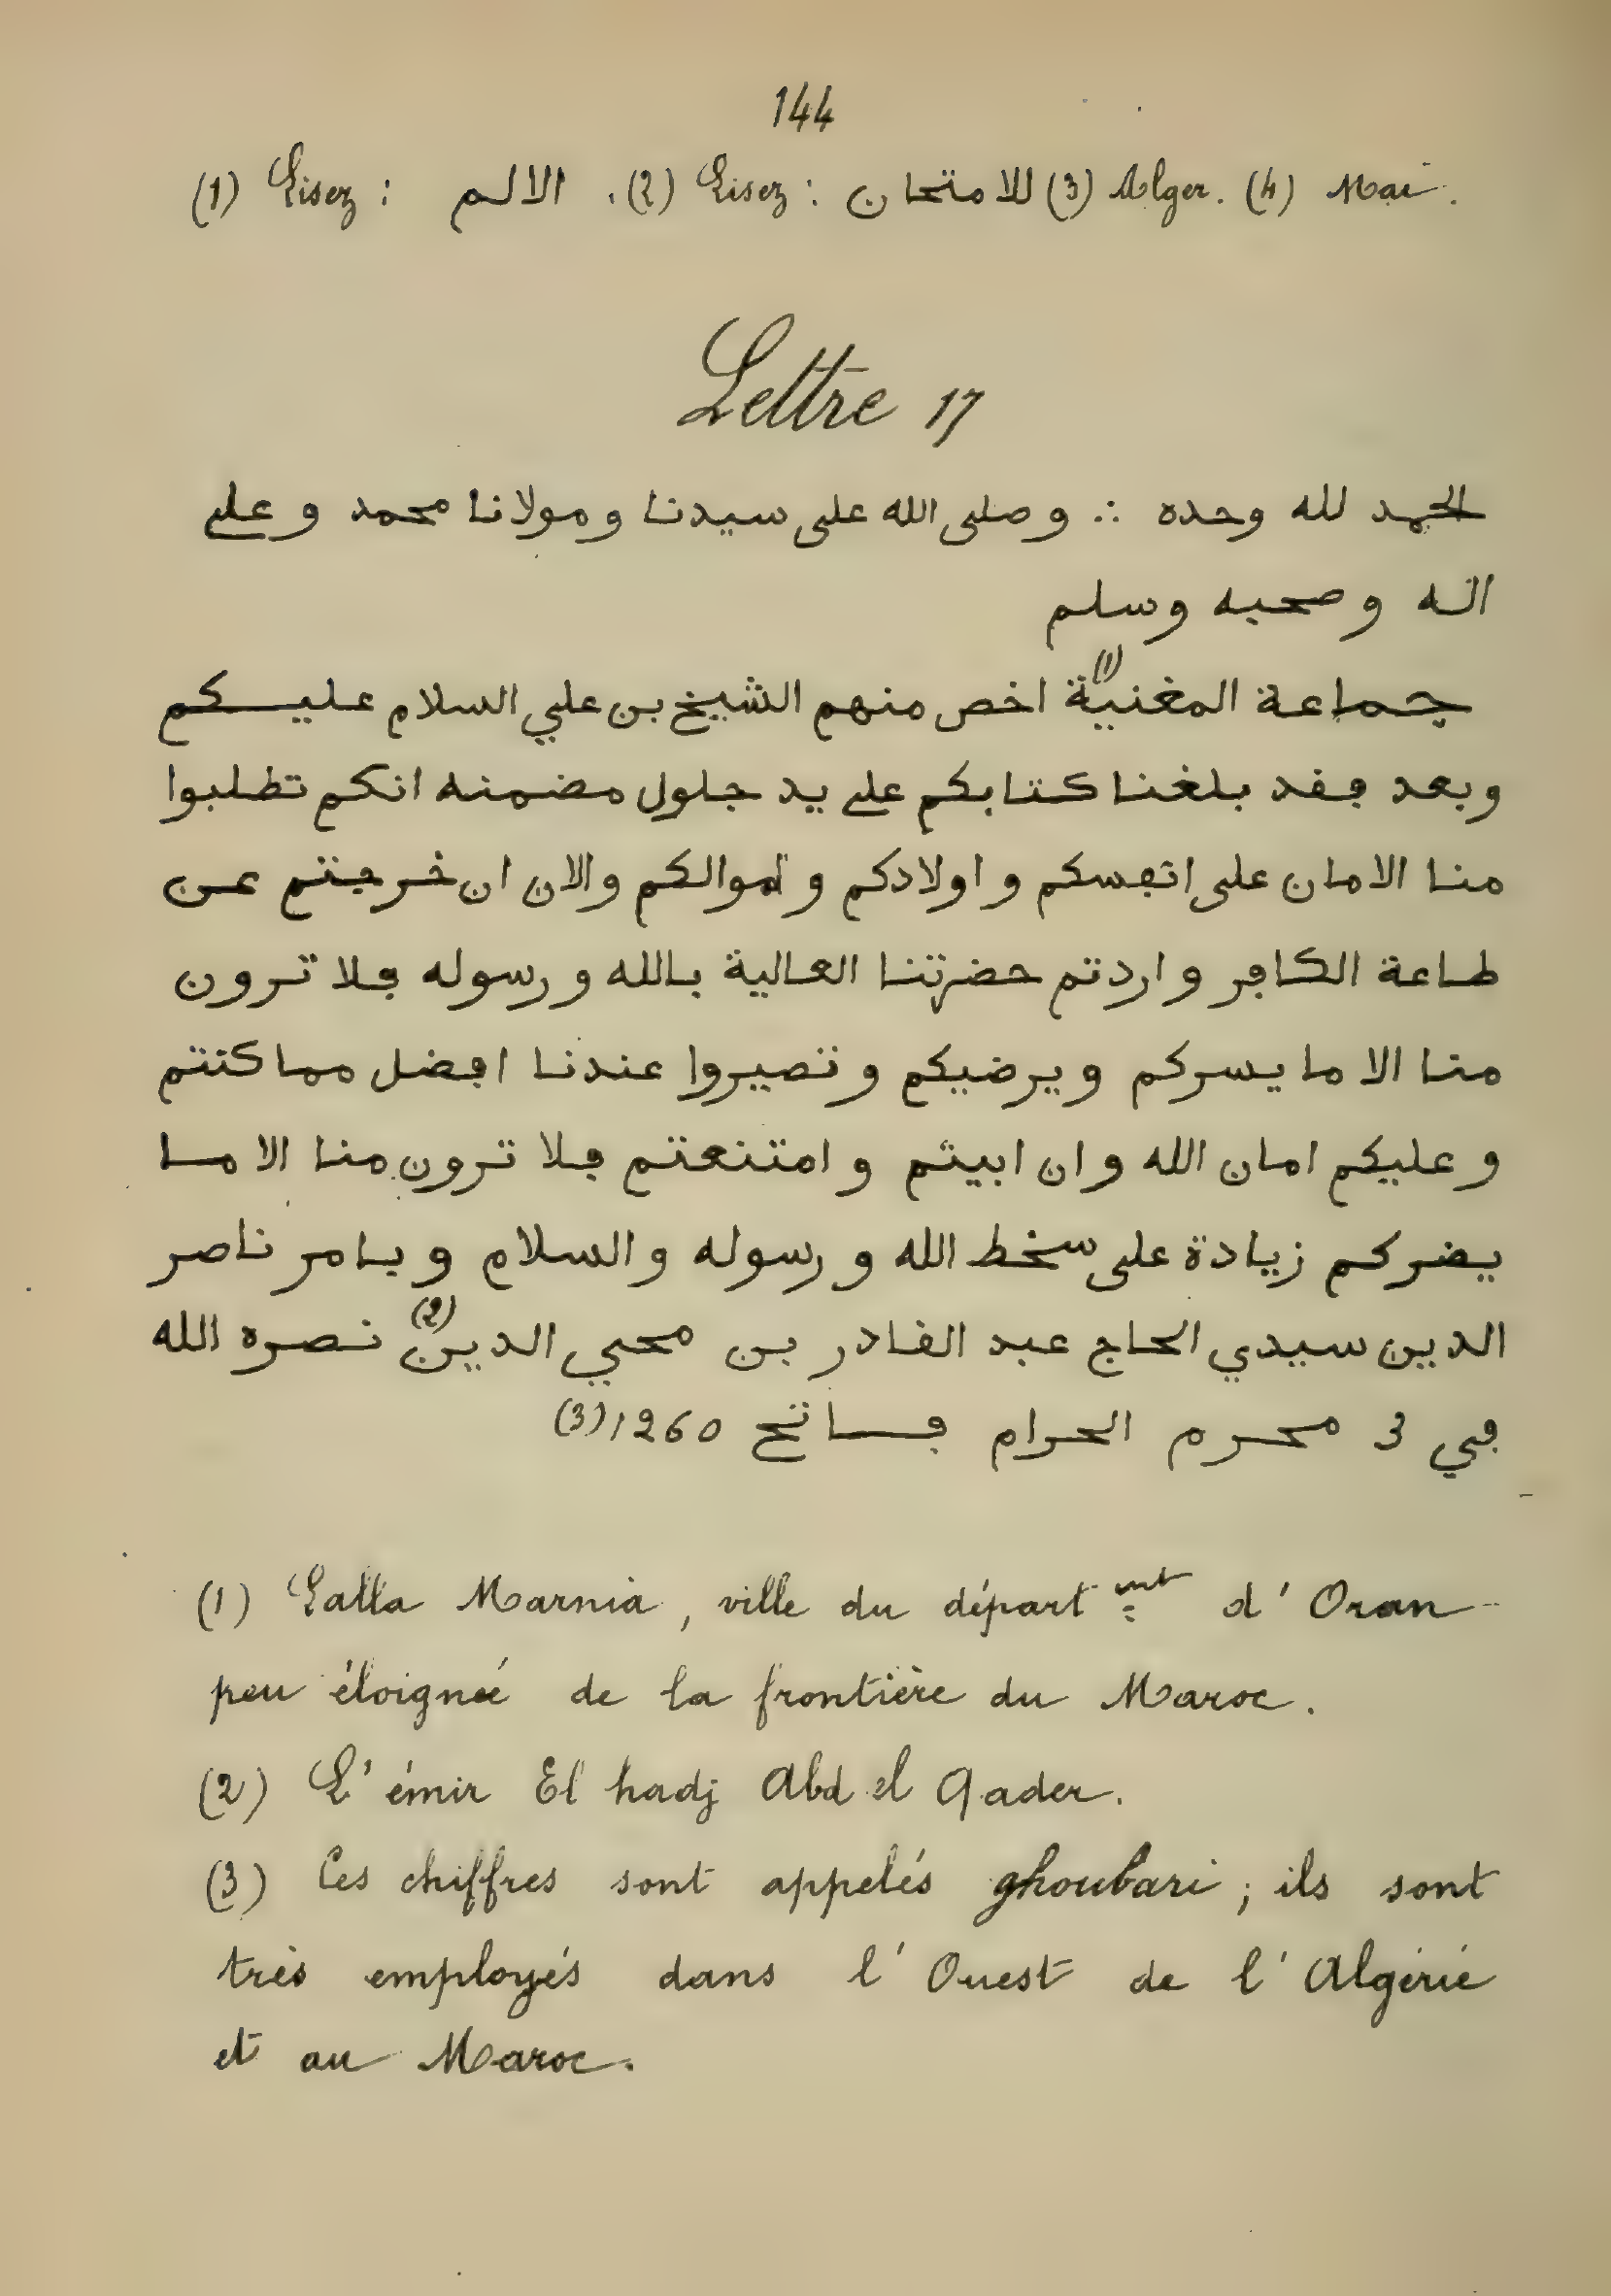 144
(1) Lisez : الالم . (2) Lisez : للامتحان (3) Alger. (4) Mai.
Lettre 17
الحمد لله وحده ∴ وصلى الله على سيدنا ومولانا محمد وعلى
اله وصحبه وسلم
جماعة المغنية (1) اخص منهم الشيخ بن علي السلام عليكم
وبعد ڢقد بلغنا كتابكم على يد جلول مضمنه انكم تطلبوا
منا الامان على انڢسكم و اولادكم و اموالكم والان ان خرجتم عن
طاعة الكاڢر و اردتم حضرتنا العالية بالله و رسوله ڢلا ترون
منا الا ما يسركم و يرضيكم و تصيروا عندنا اڢضل مما كنتم
و عليكم امان الله و ان ابيتم و امتنعتم ڢلا ترون منا الا ما
يضركم زيادة على سخط الله و رسوله و السلام و بامر ناصر
الدين سيدي الحاج عبد الفادر بن محيي الدين (2) نصره الله
ڢي 3 محرم الحرام ڢاتح 1260 (3)
(1) Lalla Marnia, ville du départ.mt d'Oran
peu éloignée de la frontière du Maroc.
(2) L'émir El hadj Abd el Qader.
(3) Ces chiffres sont appelés ghoubari ; ils sont
très employés dans l'Ouest de l'Algérie
et au Maroc.